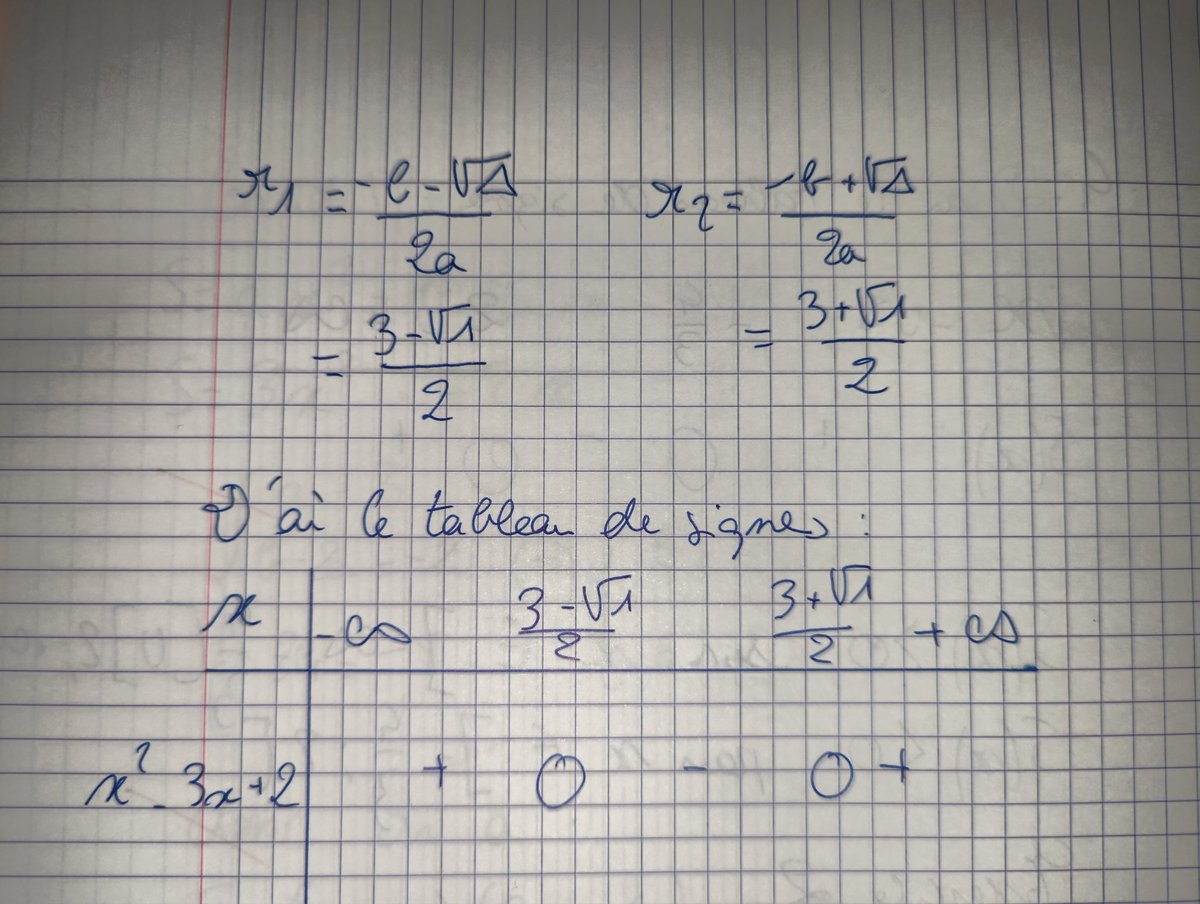 x₁ = -b-√Δ / 2a    x₂ = -b+√Δ / 2a
= 3-√1 / 2    = 3+√1 / 2
D'ai le tableau de signes :
x | -∞    3-√1 / 2    3+√1 / 2    +∞
x² - 3x+2 |    +    0    -    0    +